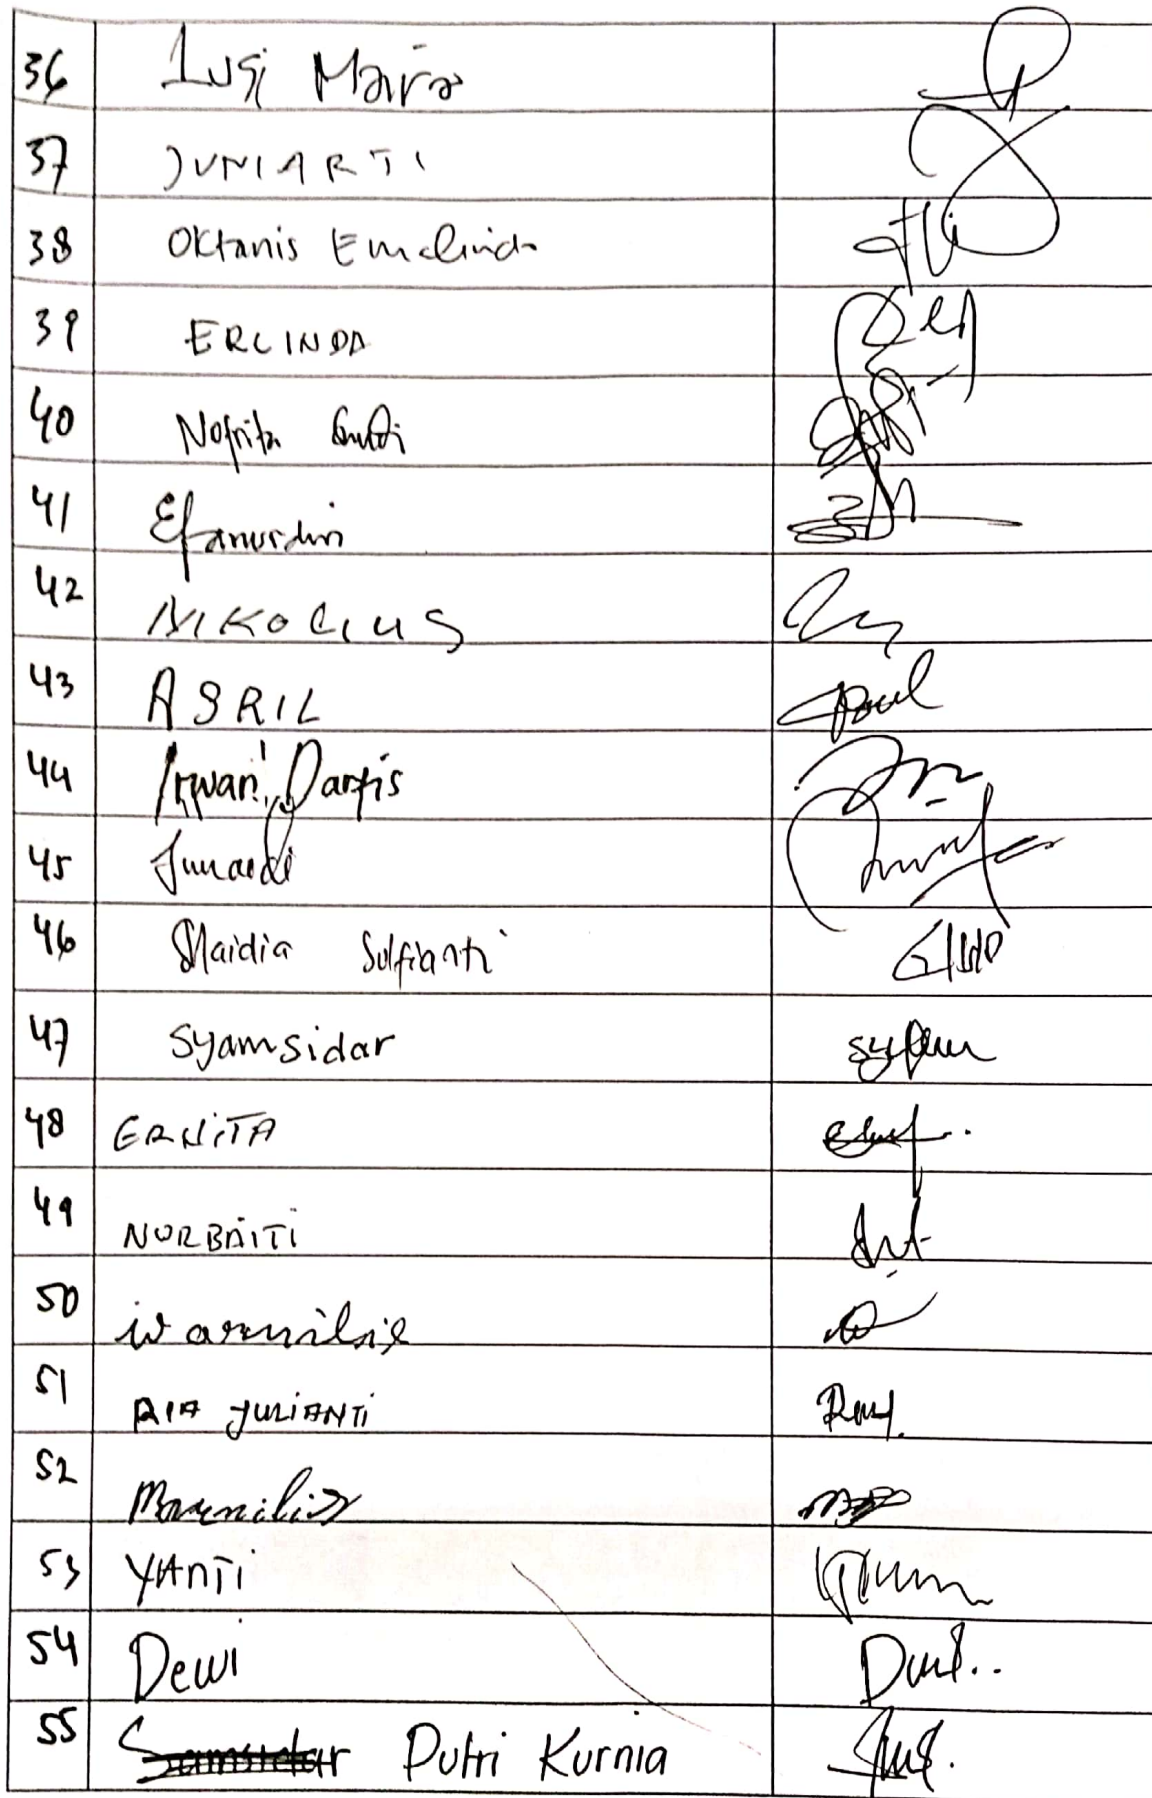 36 Lusi Maira
37 JUNIARTI
38 Oktanis Emelinda
39 ERLINDA
40 Nofrita
41 Efanurdin
42 NIKOLIUS
43 ASRIL
44 Irwan Darfis
45 Junaedi
46 Maidia Sulfianti
47 Syamsidar
48 ERNITA
49 NURBAITI
50
51 RIA YULIANTI
52
53 YANTI
54 Dewi
55 Samsidar Putri Kurnia